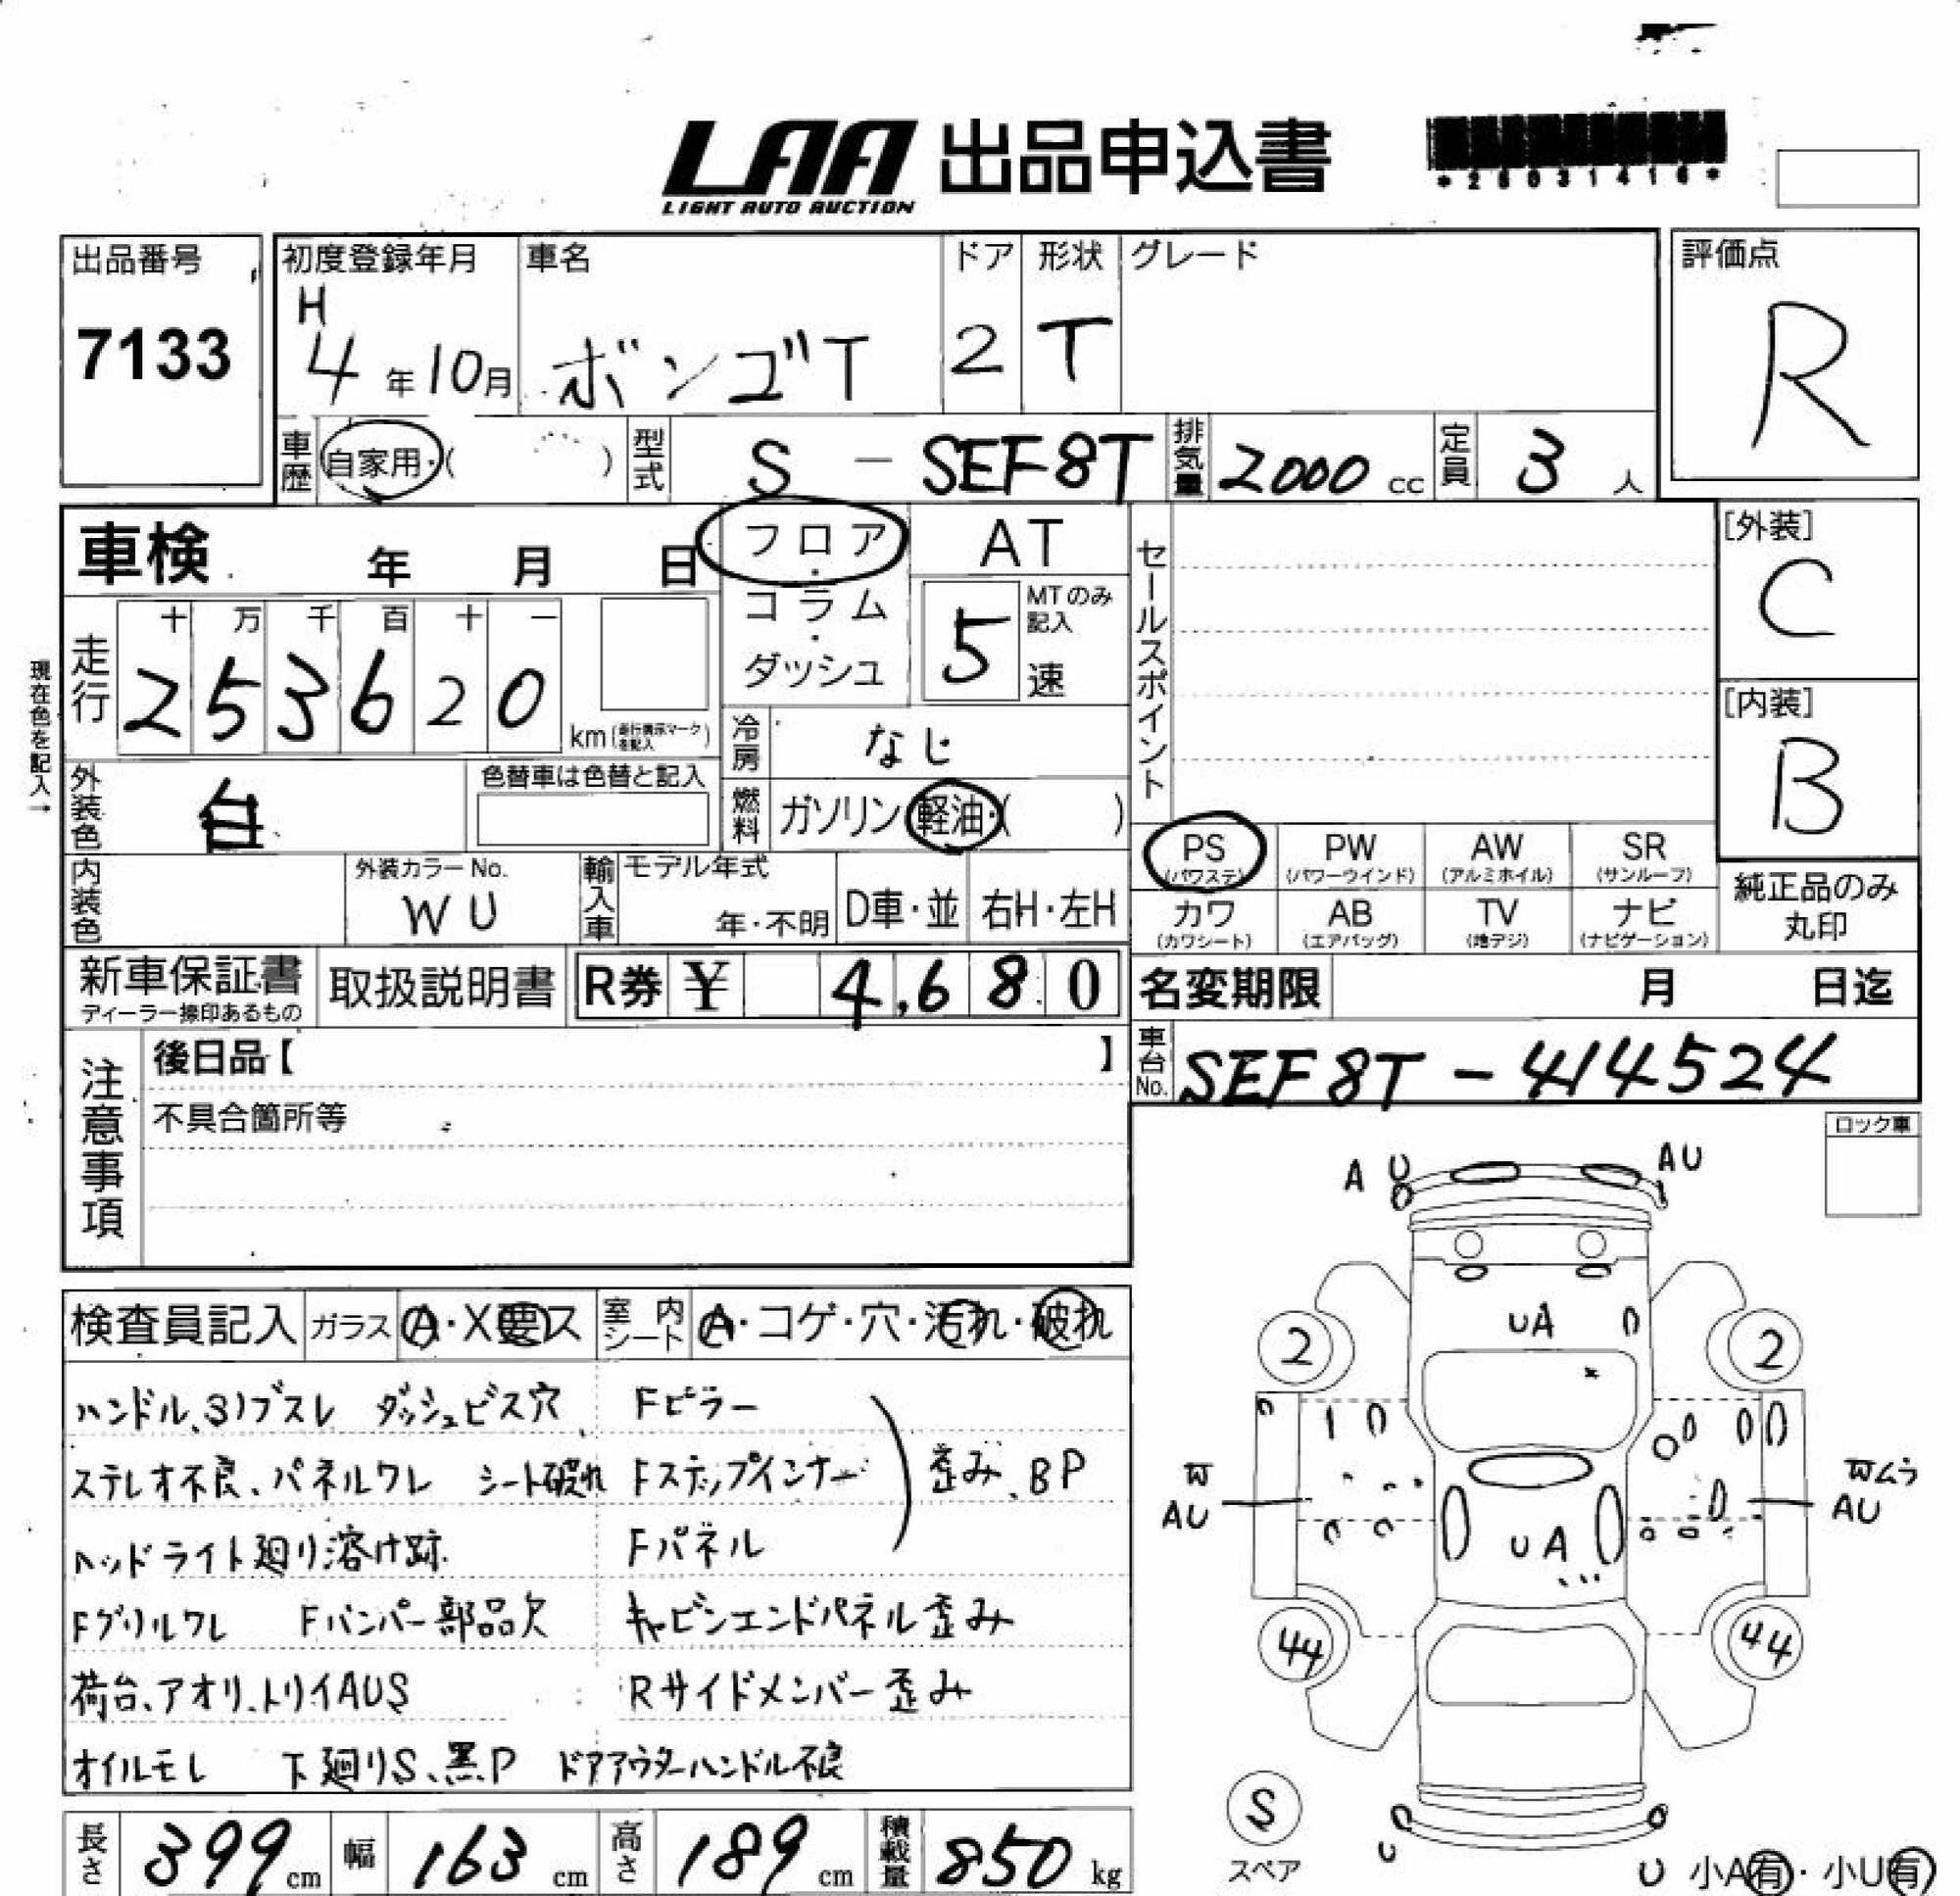 LAA 出品申込書
LIGHT AUTO AUCTION
出品番号
7133
初度登録年月
H
4年10月
車名
ボンゴT
ドア
2
形状
T
グレード
評価点
R
車歴
自家用・( )
型式
S - SEF8T
排気量
2000 cc
定員
3 人
車検 年 月 日
フロア・コラム・ダッシュ
AT
MTのみ記入
5 速
セールスポイント
[外装]
C
[内装]
B
現在色を記入→
走行
十 万 千 百 十 一
2 5 3 6 2 0
km(走行表示マークを記入)
冷房
なし
外装色
白
色替車は色替と記入
燃料
ガソリン・軽油・( )
PS
(パワステ)
PW
(パワーウインド)
AW
(アルミホイル)
SR
(サンルーフ)
内装色
外装カラーNo.
WU
輸入車
モデル年式
年・不明
D車・並
右H・左H
カワ
(カワシート)
AB
(エアバッグ)
TV
(地デジ)
ナビ
(ナビゲーション)
純正品のみ
丸印
新車保証書
取扱説明書
R券 ¥ 4,680
名変期限 月 日迄
車台No.
SEF8T-414524
注意事項
後日品【 】
不具合箇所等
ロック車
検査員記入
ガラス
A・X要ス
室内シート
A・コゲ・穴・汚れ・破れ
ハンドル、シフブスレ ダッシュビス穴 Fピラー
ステレオ不良、パネルワレ シート破れ Fステップインナー 歪み、BP
ヘッドライト廻り溶け跡 Fパネル
Fグリルワレ Fバンパー部品欠 キャビンエンドパネル歪み
荷台、アオリ、トリイAUS Rサイドメンバー歪み
オイルモレ 下廻りS、黒P ドアアウターハンドル不良
A U
AU
UA
2
2
AU
AU
UA
44
44
S
スペア
U
U 小A有・小U有
長さ
399 cm
幅
163 cm
高さ
189 cm
積載量
850 kg